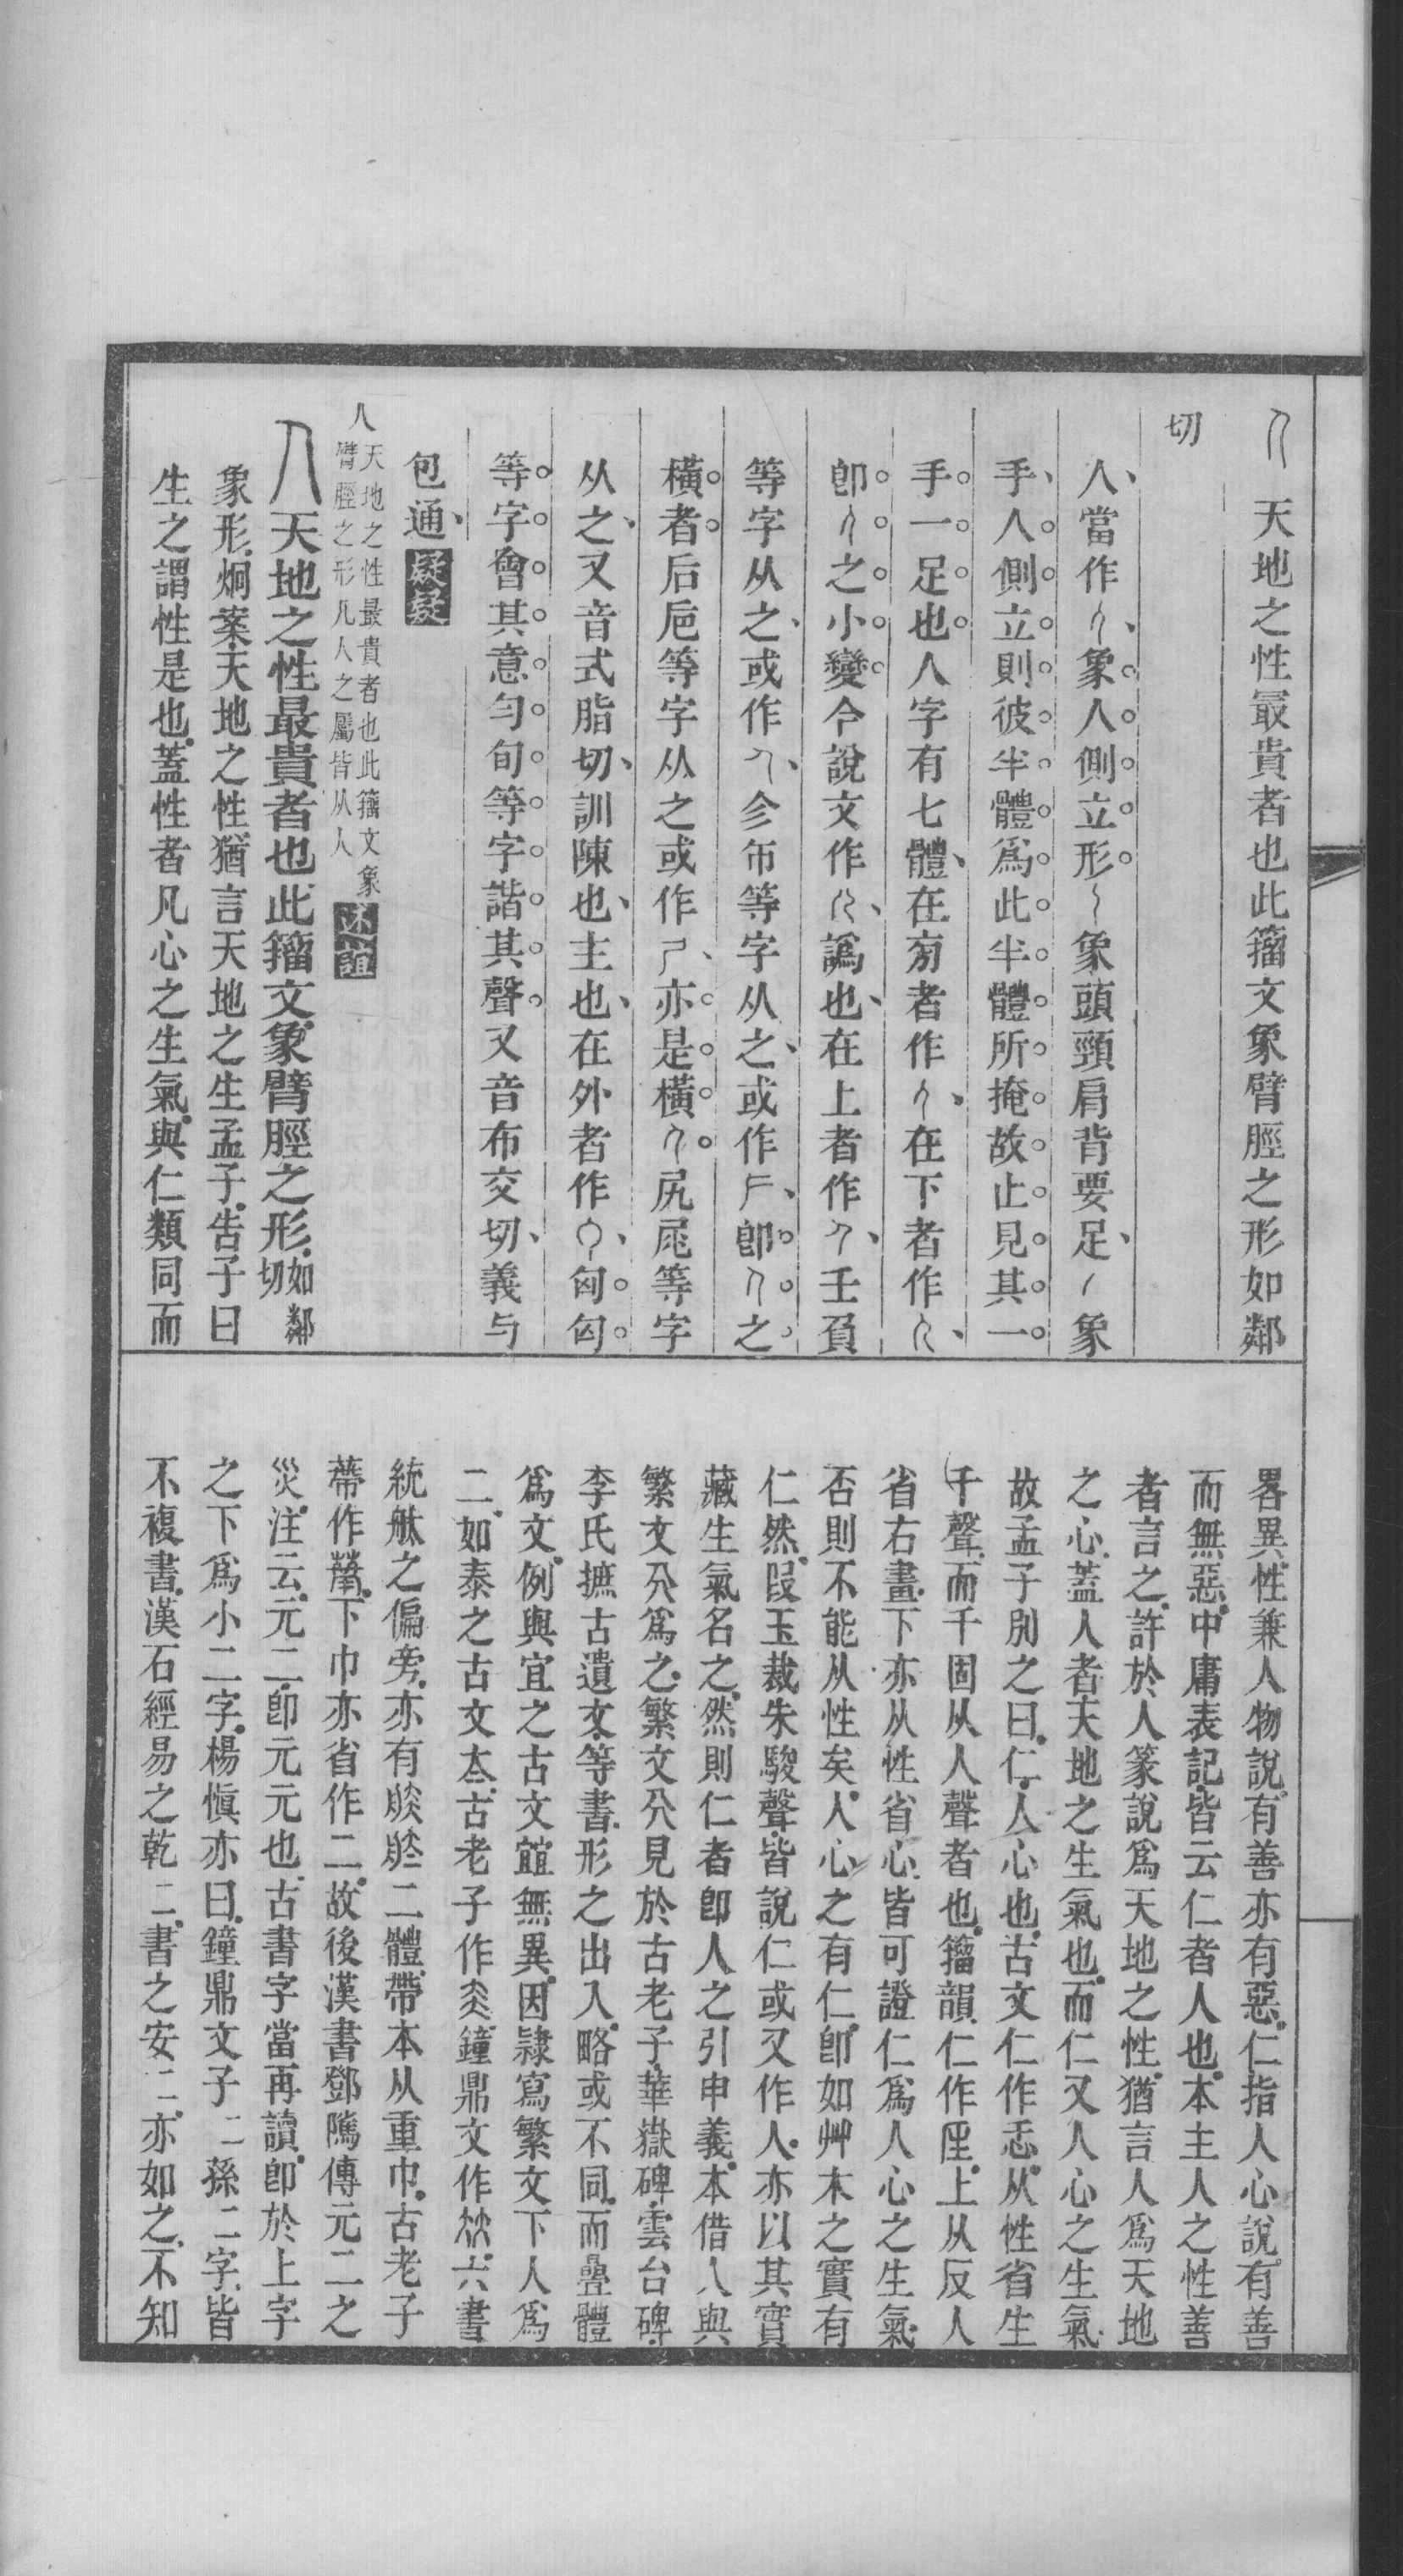 天地之性冣貴者也此籒文象臂脛之形如鄰
切
人當作象人側立形象頭頸肩背要足象
手人側立則彼半體爲此半體所掩故止見其一
手一足也人字有七體在㫄者作在下者作
卽之小變今說文作譌也在上者作壬負
等字从之或作㐱㠵等字从之或作卽之
橫者后卮等字从之或作亦是橫尻屍等字
从之又音式脂切訓陳也主也在外者作匈匃
等字會其意勻旬等字諧其聲又音布交切義与
包通疑疑
人天地之性最貴者也此籒文象
臂脛之形凡人之屬皆从人述誼
天地之性最貴者也此籒文象臂脛之形如鄰切
象形炯案天地之性猶言天地之生孟子告子曰
生之謂性是也蓋性者凡心之生氣與仁類同而
畧異性兼人物說有善亦有惡仁指人心說有善
而無惡中庸表記皆云仁者人也本主人之性善
者言之許於人篆說爲天地之性猶言人爲天地
之心蓋人者天地之生氣也而仁又人心之生氣
故孟子別之曰仁人心也古文仁作忎从性省生
千聲而千固从人聲者也籒韻仁作㞷上从反人
省右畫下亦从性省心皆可證仁爲人心之生氣
否則不能从性矣人心之有仁卽如艸木之實有
仁然段玉裁朱駿聲皆說仁或又作人亦以其實
藏生氣名之然則仁者卽人之引申義本借人與
繁文㕣爲之繁文㕣見於古老子華嶽碑雲台碑
李氏摭古遺文等書形之出入略或不同而疊體
爲文例與宜之古文䇓無異因隸寫繁文下人爲
二如泰之古文夳古老子作鐘鼎文作六書
統之偏旁亦有二體帶本从重巾古老子
蔕作下巾亦省作二故後漢書鄧隲傳元二之
災注云元二卽元元也古書字當再讀卽於上字
之下爲小二字楊愼亦曰鐘鼎文子二孫二字皆
不複書漢石經易之乾二書之安二亦如之不知